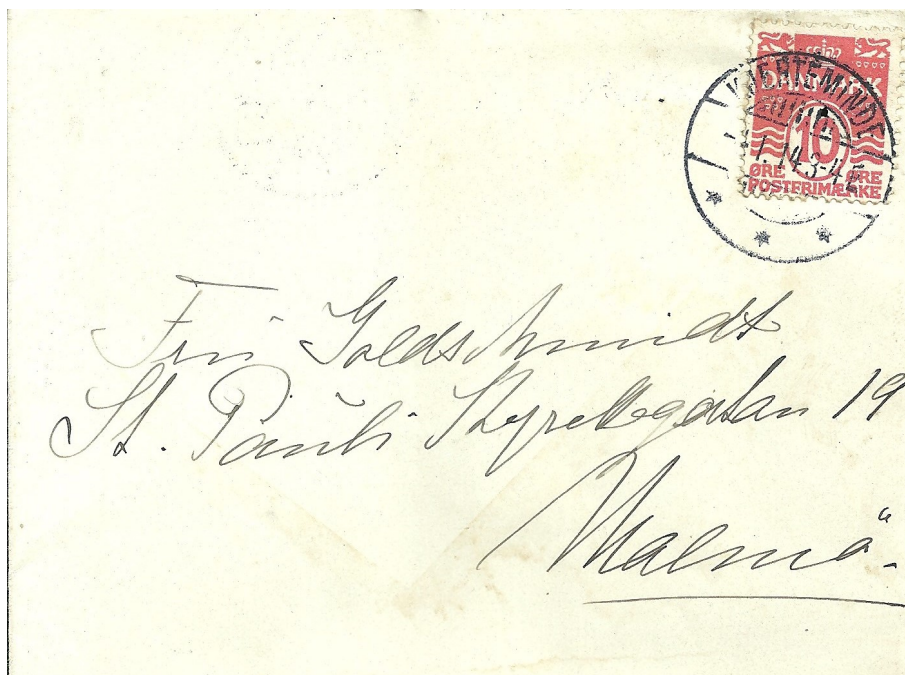 DANMARK
KJERTEMINDE
1.14 3-4
10
ØRE ØRE
POSTFRIMÆRKE
Goldschmidt
St. Pauli Kyrkogatan 19
Malmö.